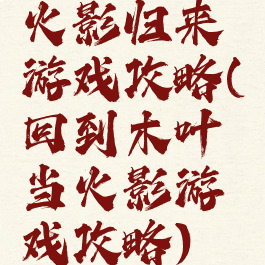 火影归来
游戏攻略(
回到木叶
当火影游
戏攻略)